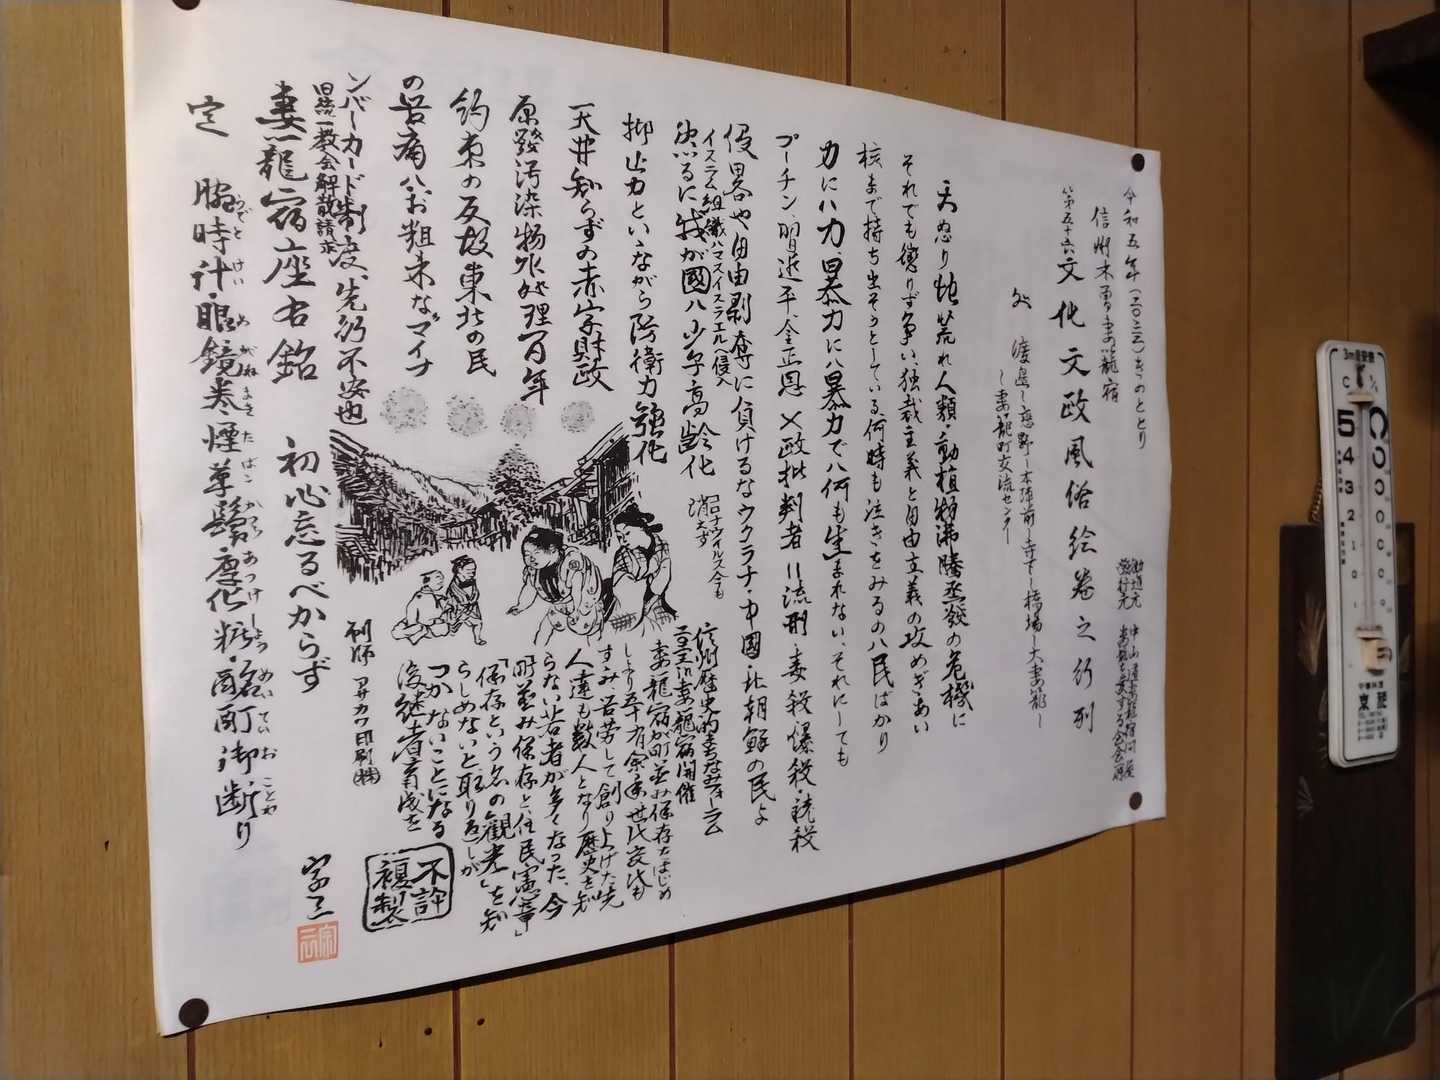 令和五年(二〇二三)きのととり
信州木曽妻籠宿
第五十六文化文政風俗絵巻之行列
勧進元 中山道妻籠宿問屋
発行元 妻籠を愛する会会所
処 渡島〜恋野〜本陣前〜寺下〜橋場〜大妻籠〜
〜妻籠町交流センター
天怒り地荒れ人類・動植物沸騰蒸發の危機に
それでも懲りず争い独裁主義と自由主義の攻めぎあい
核まで持ち出そうとしている何時も泣きをみるのハ民ばかり
力にハ力、暴力にハ暴力でハ何も生まれない、それにしても
プーチン、習近平、金正恩 ×政批判者=流刑・毒殺・爆殺・銃殺
侵略や自由剥奪に負けるなウクライナ・中國・北朝鮮の民よ
イスラム組織ハマスイスラエルへ侵入
然るに我が國ハ少子高齢化
コロナウイルス今も
消えず
抑止力といいながら防衛力強化
天井知らずの赤字財政
原發汚染物水処理百年
約束の反故東北の民
の苦痛ハお粗末な"マイナ
ンバーカード制度、先行不安也
旧統一教会解散請求
信州歴史的まちなみフォーラム
妻籠宿開催
妻籠宿が町並み保存をはじめ
しより五十有余年世代交代も
すみ、苦労して創り上げた先
人達も数人となり歴史を知
らない若者が多くなった、今
町並み保存と住民憲章」
「保存という名の観光」を知
らしめないと取り返しが
つかないことになる
後継者育成を
刷師 アサカワ印刷㈱
妻籠宿座右銘 初心忘るべからず
定 腕時計・眼鏡・巻煙草・鬘・厚化粧・酩酊御断り
うでとけい めがね まきたばこ かつら あつげしょう めいてい おことわ
不許
複製
宗三
宗三
3m自發信
C
5
4
3
2
1
0